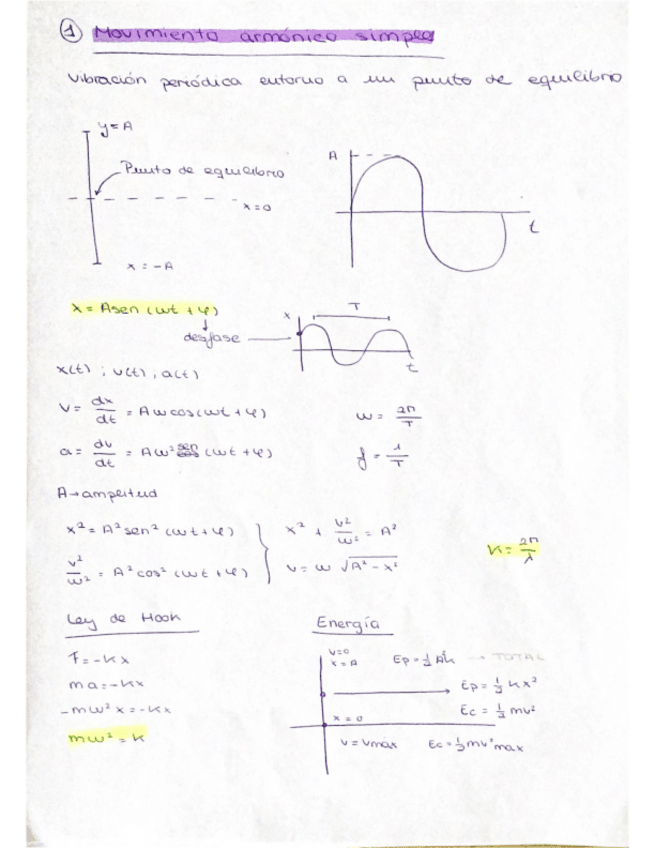 ① Movimiento armónico simple
Vibración periódica entorno a un punto de equilibrio
y=A
Punto de equilibrio
x=0
x=-A
A
t
x = Asen (ωt + φ)
desfase
x
T
t
x(t) ; v(t) ; a(t)
v = dx/dt = Aωcos(ωt + φ)
ω = 2π/T
a = dv/dt = Aω² sen (ωt + φ)
f = 1/T
A → amplitud
x² = A² sen² (ωt + φ)
x² + v²/ω² = A²
v²/ω² = A² cos² (ωt + φ)
v = ω √A² - x²
K = 2π/λ
Ley de Hook
Energía
F = -Kx
ma = -Kx
-mω²x = -Kx
mω² = K
v=0
x=A
Ep = ½ A²k → TOTAL
Ep = ½ Kx²
Ec = ½ mv²
x=0
v = vmáx
Ec = ½ mv² max